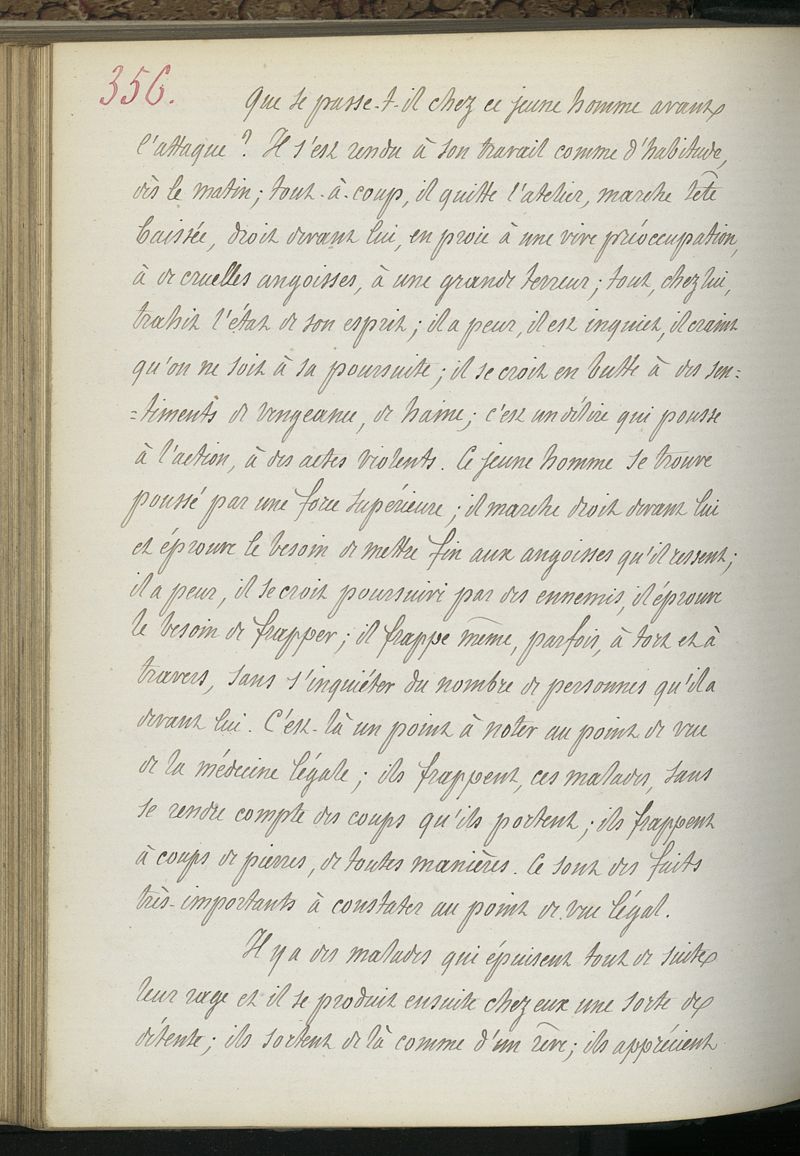 356.
Que se passe-t-il chez ce jeune homme avant
l'attaque ? Il s'est rendu à son travail comme d'habitude,
dès le matin ; tout-à-coup, il quitte l'atelier, marche tête
baissée, droit devant lui, en proie à une vive préoccupation,
à de cruelles angoisses, à une grande terreur ; tout, chez lui,
trahit l'état de son esprit ; il a peur, il est inquiet, il craint
qu'on ne soit à sa poursuite ; il se croit en butte à des sen=
=timents de vengeance, de haine ; c'est un délire qui pousse
à l'action, à des actes violents. Ce jeune homme se trouve
poussé par une force supérieure ; il marche droit devant lui
et éprouve le besoin de mettre fin aux angoisses qu'il ressent ;
il a peur, il se croit poursuivi par des ennemis, il éprouve
le besoin de frapper ; il frappe même, parfois, à tort et à
travers, sans s'inquiéter du nombre de personnes qu'il a
devant lui. C'est-là un point à noter au point de vue
de la médecine légale ; ils frappent, ces malades, sans
se rendre compte des coups qu'ils portent ; ils frappent
à coups de pierres, de toutes manières. Ce sont des faits
très-importants à constater au point de vue légal.
Il y a des malades qui épuisent tout de suite
leur rage et il se produit ensuite chez eux une sorte de
détente ; ils sortent de là comme d'un rêve ; ils apprécient